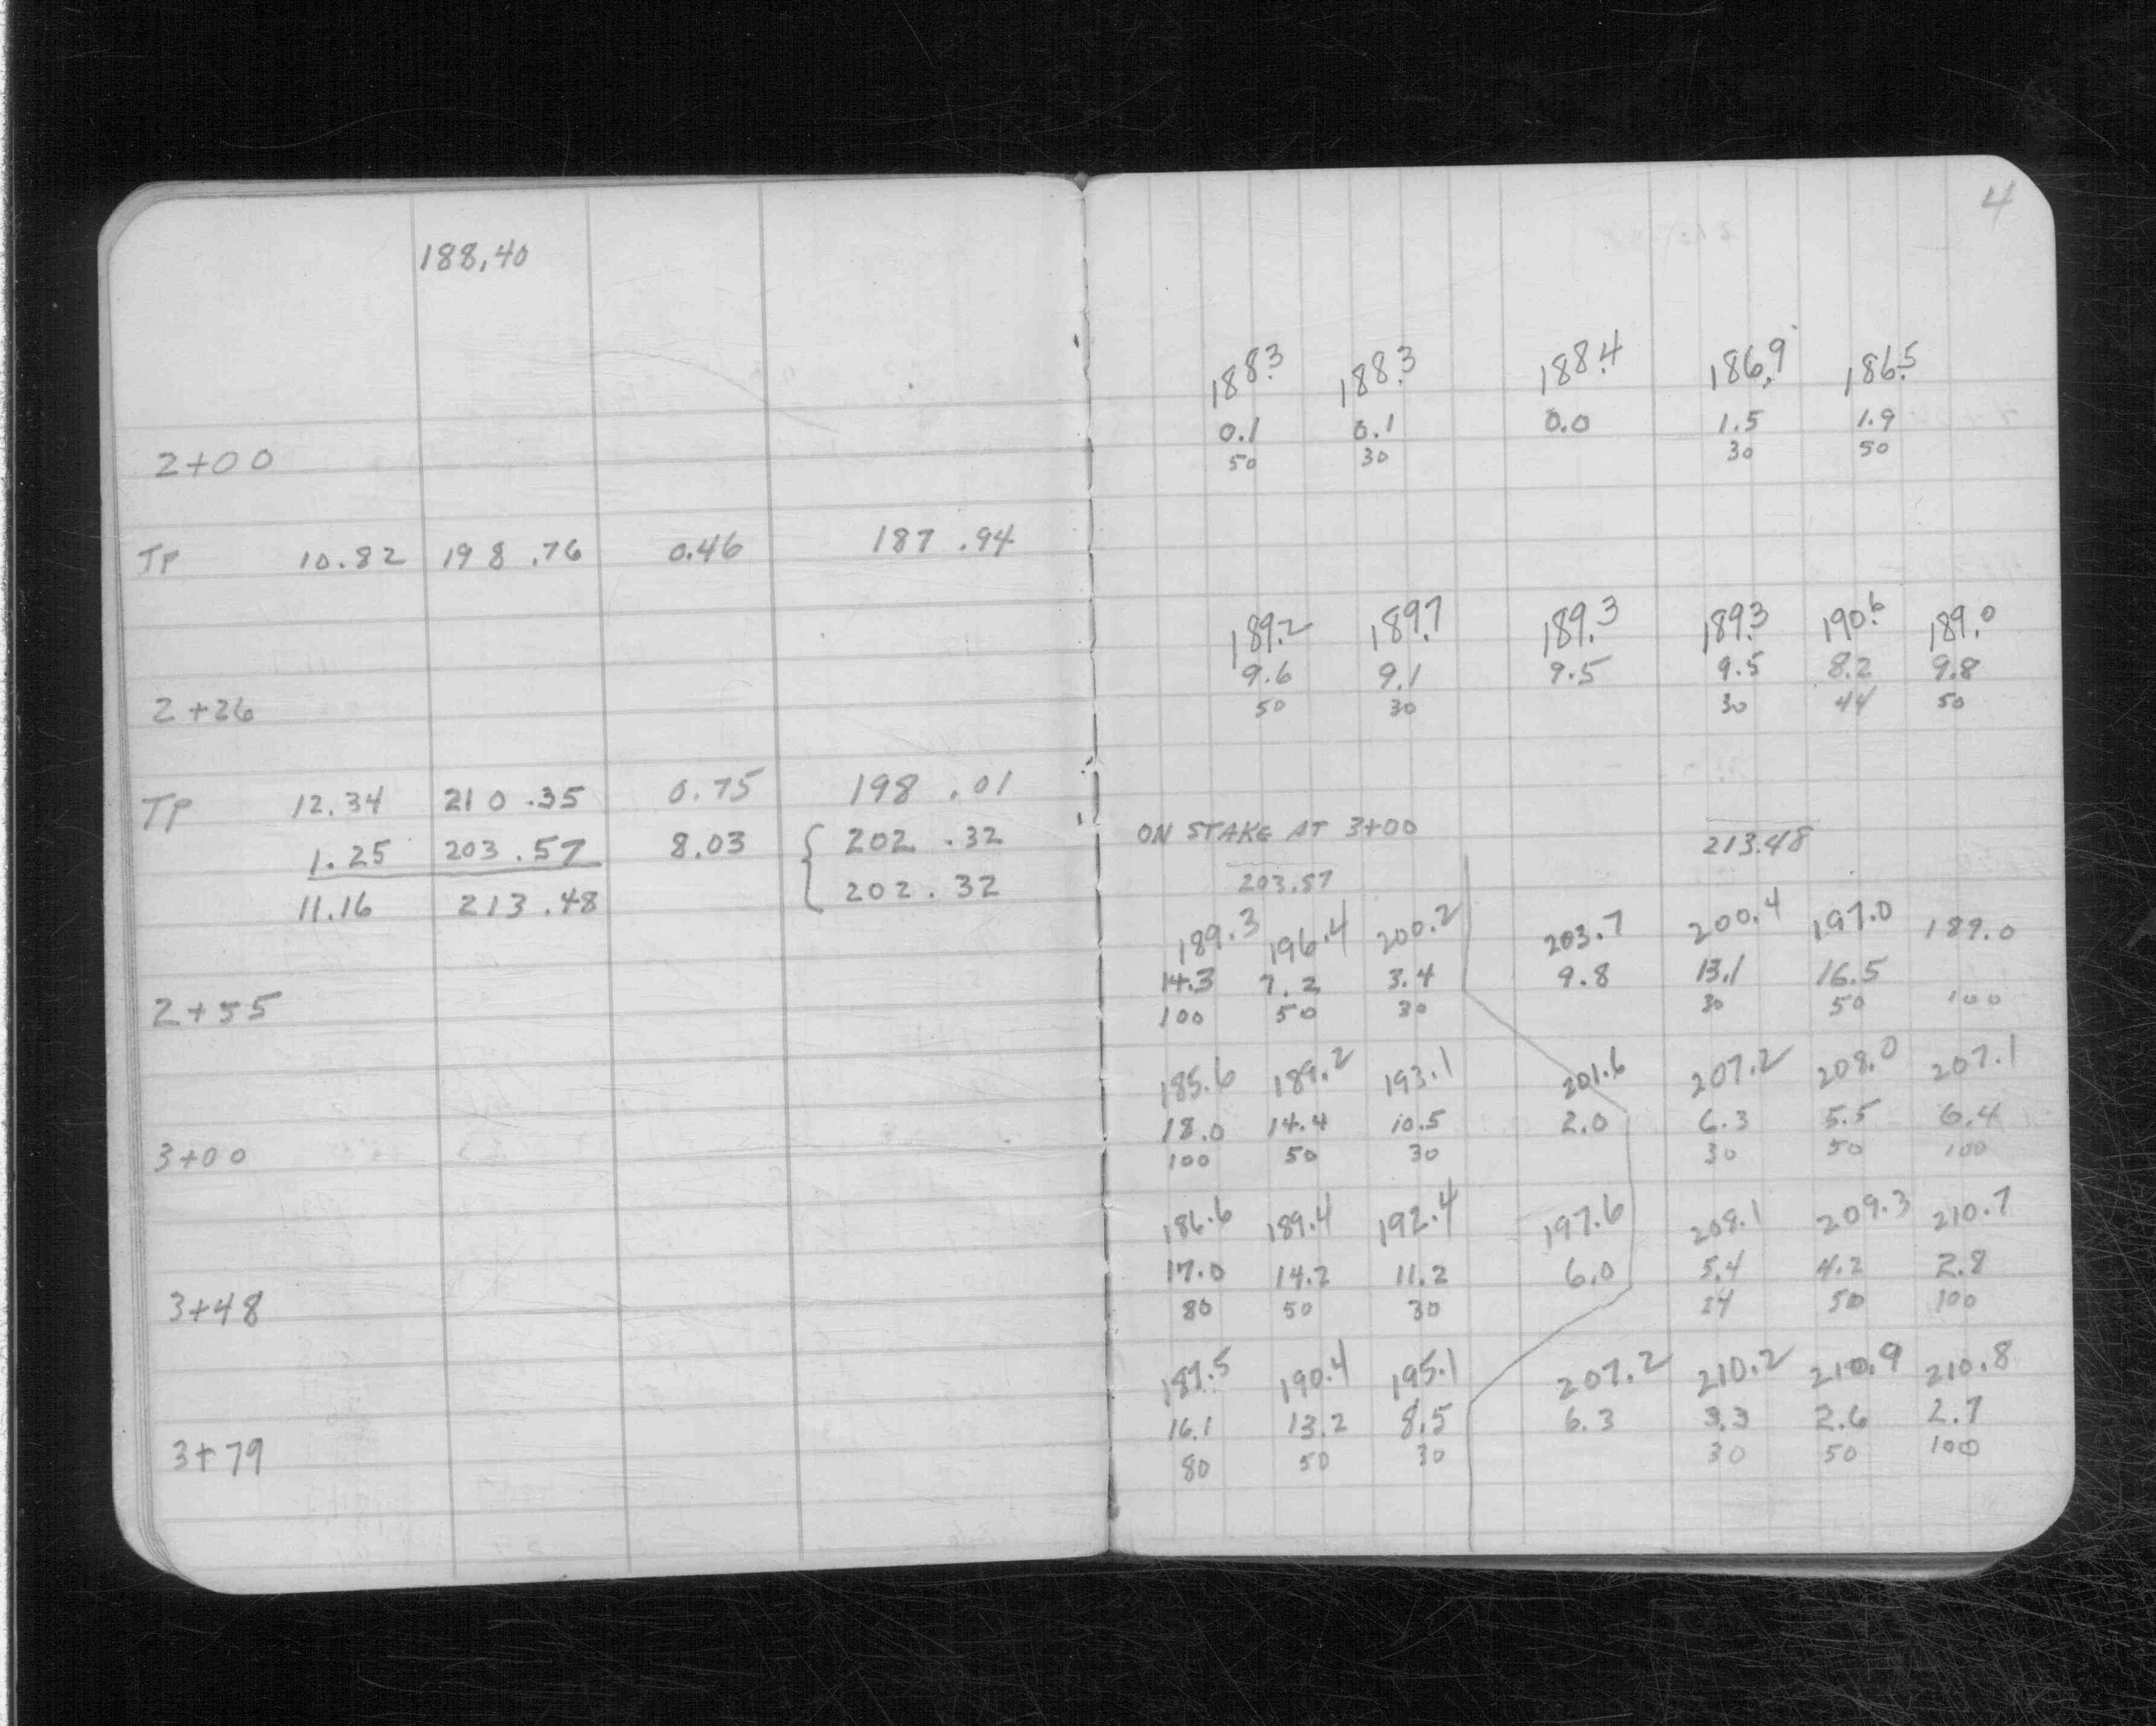 188.40
2+00
TP 10.82 198.76 0.46 187.94
2+26
TP 12.34 210.35 0.75 198.01
1.25 203.57 8.03 { 202.32
11.16 213.48 202.32
2+55
3+00
3+48
3+79
4
188.3 188.3 188.4 186.9 186.5
0.1 0.1 0.0 1.5 1.9
50 30 30 50
189.2 189.7 189.3 189.3 190.6 189.0
9.6 9.1 9.5 9.5 8.2 9.8
50 30 30 44 50
ON STAKE AT 3+00 213.48
203.57
189.3 196.4 200.2 203.7 200.4 197.0 189.0
14.3 7.2 3.4 9.8 13.1 16.5
100 50 30 30 50 100
185.6 189.2 193.1 201.6 207.2 208.0 207.1
18.0 14.4 10.5 2.0 6.3 5.5 6.4
100 50 30 30 50 100
186.6 189.4 192.4 197.6 208.1 209.3 210.7
17.0 14.2 11.2 6.0 5.4 4.2 2.8
80 50 30 24 50 100
187.5 190.4 195.1 207.2 210.2 210.9 210.8
16.1 13.2 8.5 6.3 3.3 2.6 2.7
80 50 30 30 50 100